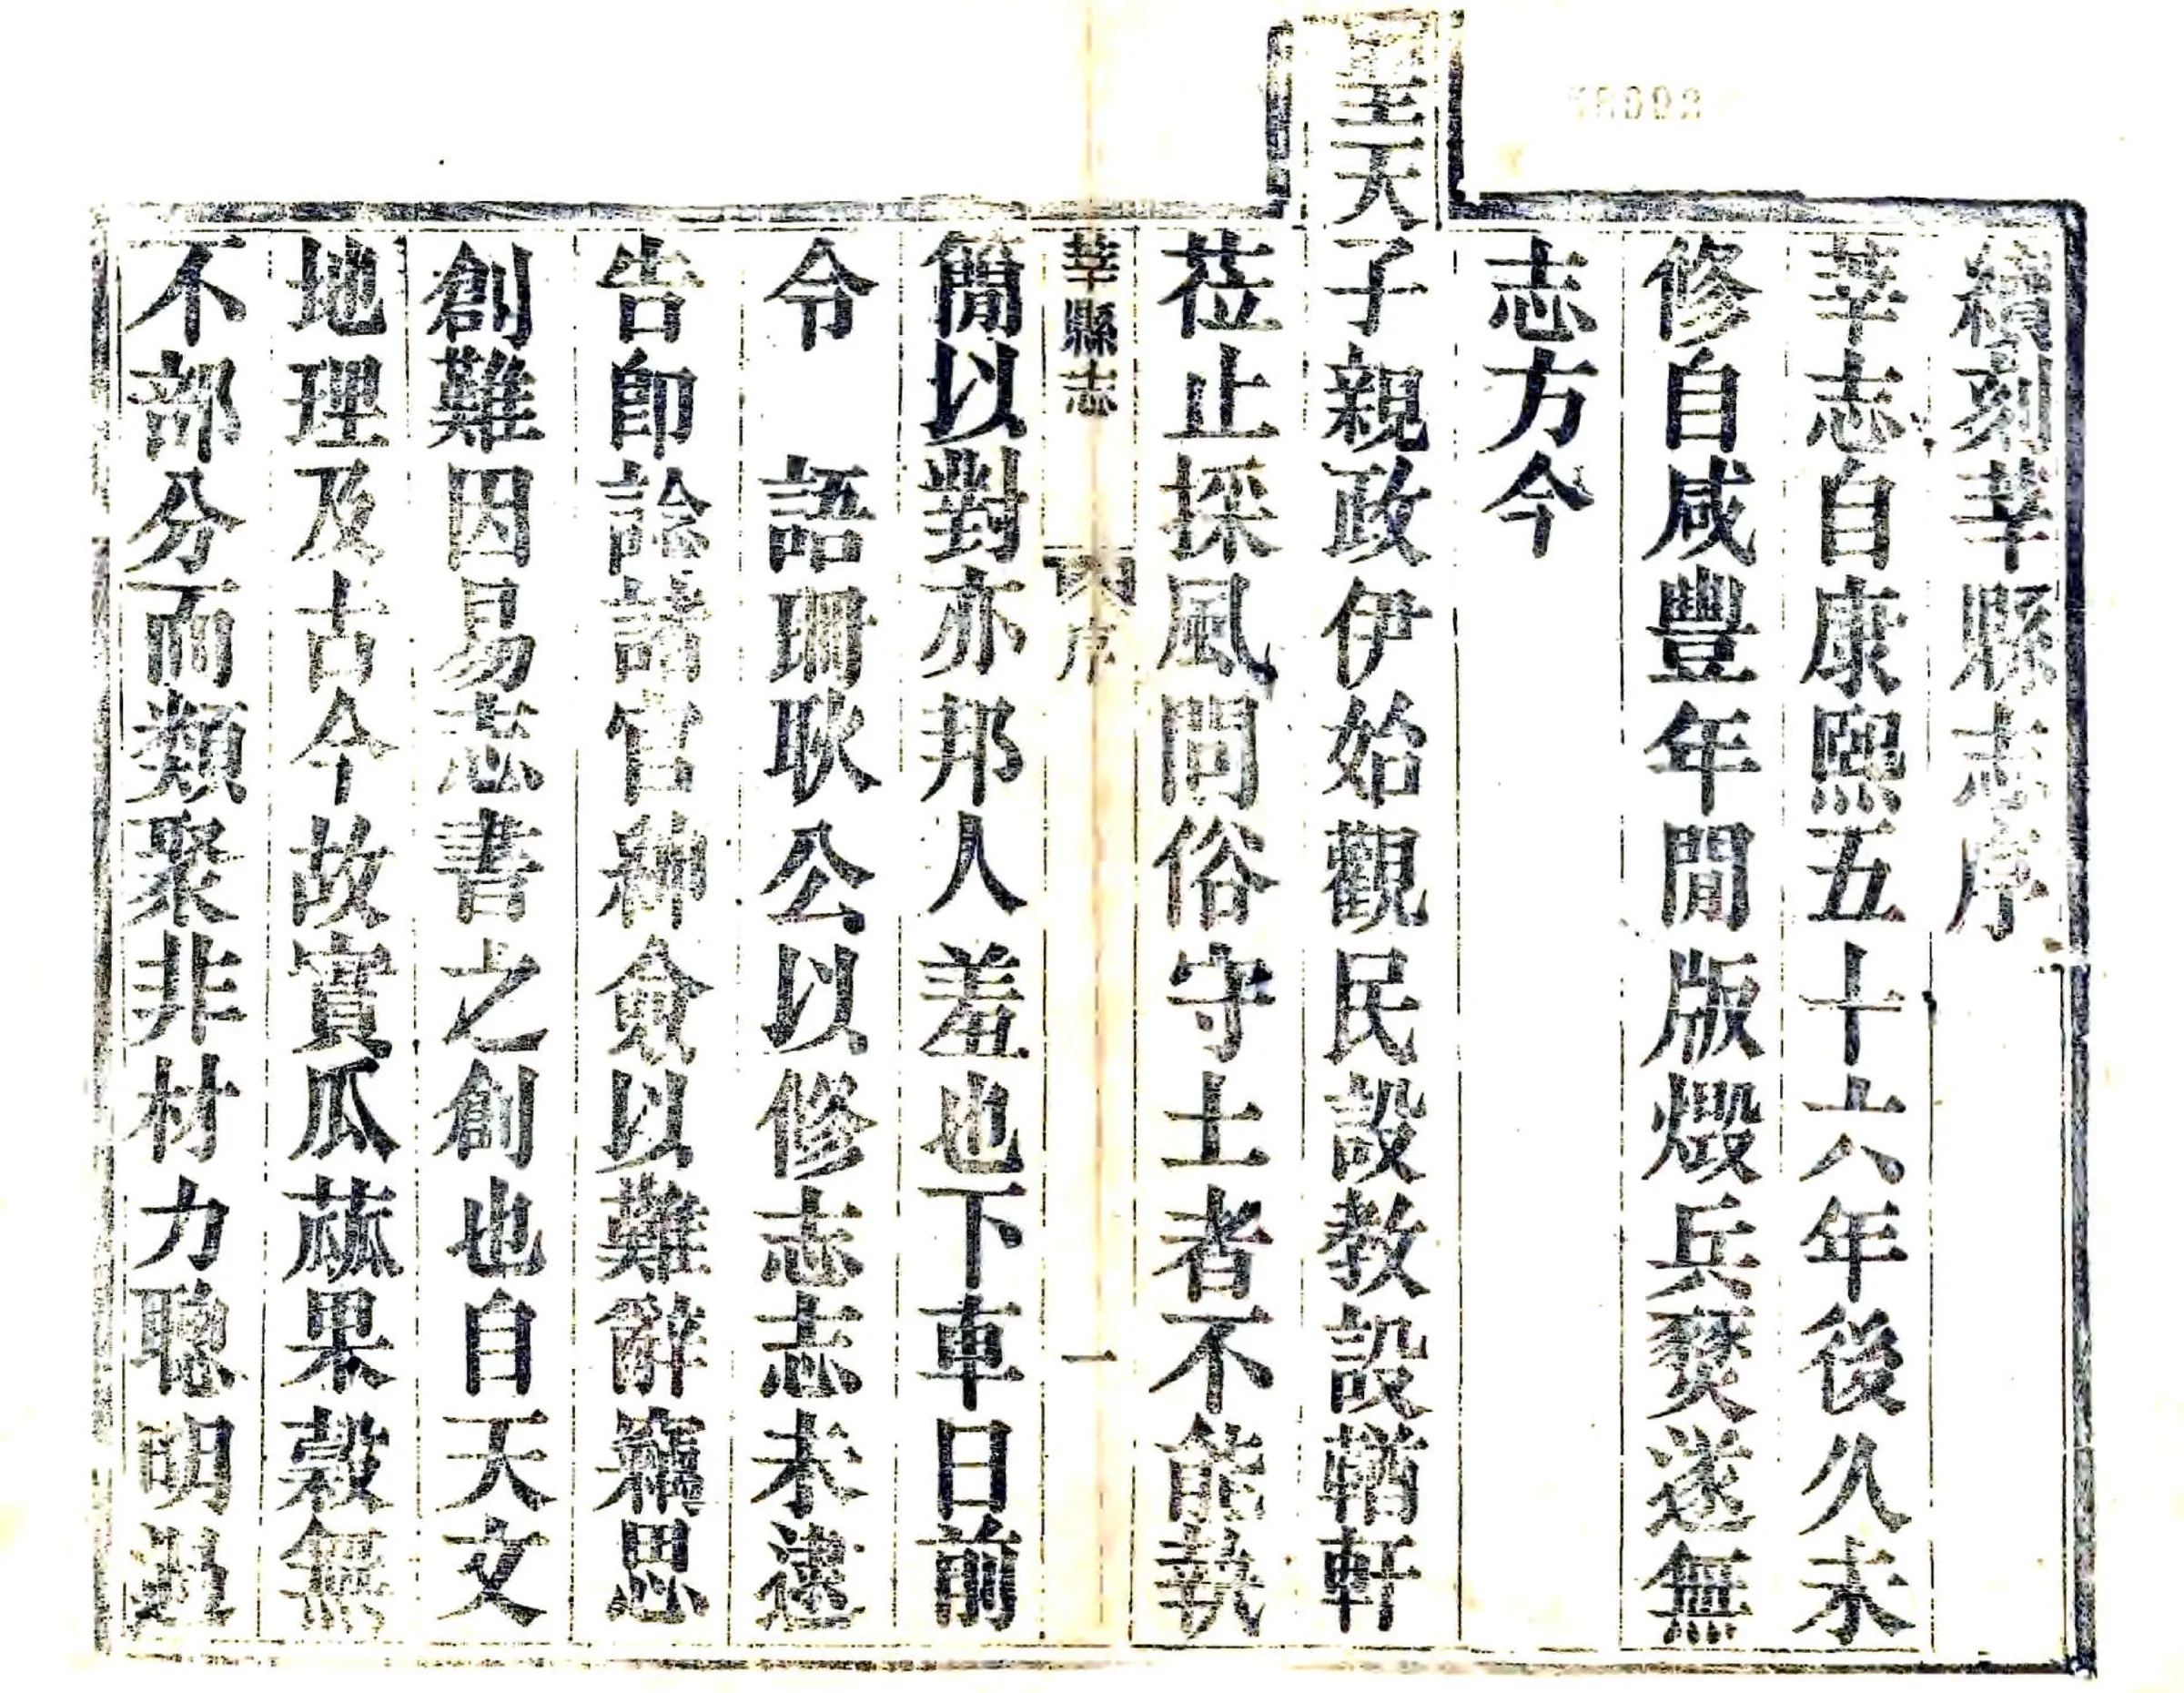 續刻莘縣志序
莘志自康熙五十六年後久未
修自咸豐年間版燬兵燹遂無
志方今
聖天子親政伊始觀民設教設輶軒
莅止採風問俗守土者不能執
莘縣志 序 一
簡以對亦邦人羞也下車日前
令 語珊耿公以修志志未逮
告即諗諸官紳僉以難辭竊思
創難因易志書之創也自天文
地理及古今故實瓜蓏果穀無
不部分而類聚非材力聰明過